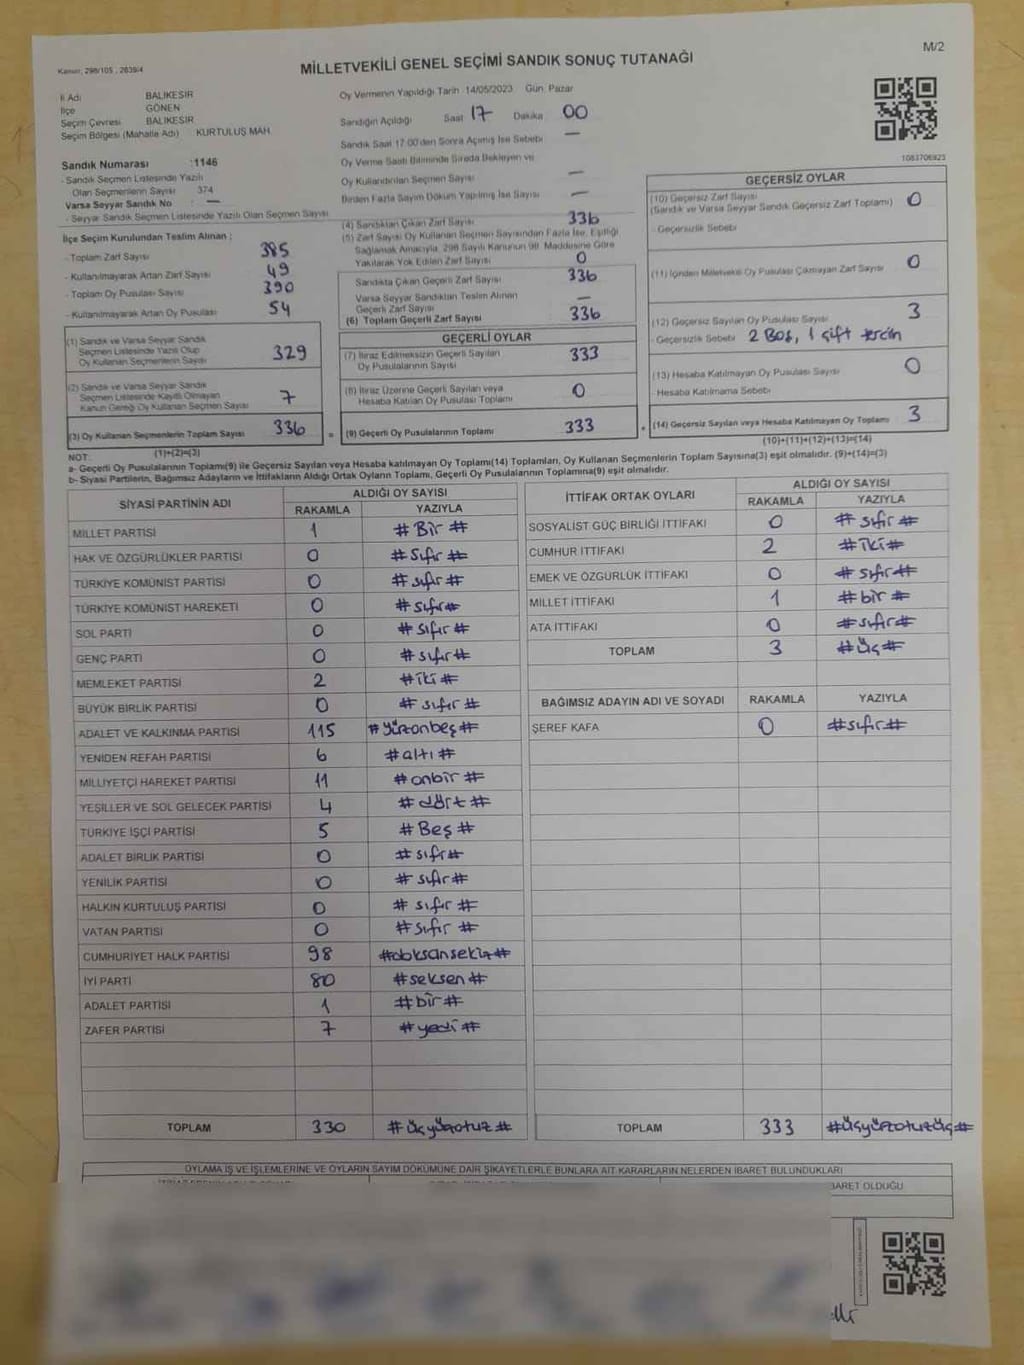 M/2
Kanun, 298/105 , 2839/4
MİLLETVEKİLİ GENEL SEÇİMİ SANDIK SONUÇ TUTANAĞI
İl Adı BALIKESİR
İlçe GÖNEN
Seçim Çevresi BALIKESİR
Seçim Bölgesi (Mahalle Adı) KURTULUŞ MAH.
Sandık Numarası :1146
- Sandık Seçmen Listesinde Yazılı
Olan Seçmenlerin Sayısı 374
Varsa Seyyar Sandık No : —
- Seyyar Sandık Seçmen Listesinde Yazılı Olan Seçmen Sayısı
İlçe Seçim Kurulundan Teslim Alınan :
- Toplam Zarf Sayısı 385
- Kullanılmayarak Artan Zarf Sayısı 49
- Toplam Oy Pusulası Sayısı 390
- Kullanılmayarak Artan Oy Pusulası 54
(1) Sandık ve Varsa Seyyar Sandık
Seçmen Listesinde Yazılı Olup
Oy Kullanan Seçmenlerin Sayısı 329
(2) Sandık ve Varsa Seyyar Sandık
Seçmen Listesinde Kayıtlı Olmayan
Kanun Gereği Oy Kullanan Seçmen Sayısı 7
(3) Oy Kullanan Seçmenlerin Toplam Sayısı 336
(1)+(2)=(3)
Oy Vermenin Yapıldığı Tarih 14/05/2023 Gün Pazar
Sandığın Açıldığı Saat 17 Dakika 00
Sandık Saat 17:00'den Sonra Açılmış İse Sebebi —
Oy Verme Saati Bitiminde Sırada Bekleyen ve
Oy Kullandırılan Seçmen Sayısı —
Birden Fazla Sayım Döküm Yapılmış İse Sayısı —
(4) Sandıktan Çıkan Zarf Sayısı 336
(5) Zarf Sayısı Oy Kullanan Seçmen Sayısından Fazla İse, Eşitliği
Sağlamak Amacıyla, 298 Sayılı Kanunun 98. Maddesine Göre
Yakılarak Yok Edilen Zarf Sayısı 0
Sandıkta Çıkan Geçerli Zarf Sayısı 336
Varsa Seyyar Sandıktan Teslim Alınan
Geçerli Zarf Sayısı —
(6) Toplam Geçerli Zarf Sayısı 336
GEÇERLİ OYLAR
(7) İtiraz Edilmeksizin Geçerli Sayılan
Oy Pusulasının Sayısı 333
(8) İtiraz Üzerine Geçerli Sayılan veya
Hesaba Katılan Oy Pusulası Toplamı 0
= (9) Geçerli Oy Pusulalarının Toplamı 333
1083706923
GEÇERSİZ OYLAR
(10) Geçersiz Zarf Sayısı 0
(Sandık ve Varsa Seyyar Sandık Geçersiz Zarf Toplamı)
- Geçersizlik Sebebi
(11) İçinden Milletvekili Oy Pusulası Çıkmayan Zarf Sayısı 0
(12) Geçersiz Sayılan Oy Pusulası Sayısı 3
- Geçersizlik Sebebi 2 Boş, 1 çift tercih
(13) Hesaba Katılmayan Oy Pusulası Sayısı 0
Hesaba Katılmama Sebebi
+ (14) Geçersiz Sayılan veya Hesaba Katılmayan Oy Toplamı 3
(10)+(11)+(12)+(13)=(14)
NOT:
a- Geçerli Oy Pusulalarının Toplamı(9) ile Geçersiz Sayılan veya Hesaba katılmayan Oy Toplamı(14) Toplamları, Oy Kullanan Seçmenlerin Toplam Sayısına(3) eşit olmalıdır. (9)+(14)=(3)
b- Siyasi Partilerin, Bağımsız Adayların ve İttifakların Aldığı Ortak Oyların Toplamı, Geçerli Oy Pusulalarının Toplamına(9) eşit olmalıdır.
SİYASİ PARTİNİN ADI ALDIĞI OY SAYISI
RAKAMLA YAZIYLA
MİLLET PARTİSİ 1 #Bir#
HAK VE ÖZGÜRLÜKLER PARTİSİ 0 #Sıfır#
TÜRKİYE KOMÜNİST PARTİSİ 0 #sıfır#
TÜRKİYE KOMÜNİST HAREKETİ 0 #sıfır#
SOL PARTİ 0 #Sıfır#
GENÇ PARTİ 0 #sıfır#
MEMLEKET PARTİSİ 2 #iki#
BÜYÜK BİRLİK PARTİSİ 0 #sıfır#
ADALET VE KALKINMA PARTİSİ 115 #yüzonbeş#
YENİDEN REFAH PARTİSİ 6 #altı#
MİLLİYETÇİ HAREKET PARTİSİ 11 #onbir#
YEŞİLLER VE SOL GELECEK PARTİSİ 4 #dört#
TÜRKİYE İŞÇİ PARTİSİ 5 #Beş#
ADALET BİRLİK PARTİSİ 0 #sıfır#
YENİLİK PARTİSİ 0 #sıfır#
HALKIN KURTULUŞ PARTİSİ 0 #sıfır#
VATAN PARTİSİ 0 #Sıfır#
CUMHURİYET HALK PARTİSİ 98 #doksansekiz#
İYİ PARTİ 80 #seksen#
ADALET PARTİSİ 1 #bir#
ZAFER PARTİSİ 7 #yedi#
TOPLAM 330 #üçyüzotuz#
İTTİFAK ORTAK OYLARI ALDIĞI OY SAYISI
RAKAMLA YAZIYLA
SOSYALİST GÜÇ BİRLİĞİ İTTİFAKI 0 #sıfır#
CUMHUR İTTİFAKI 2 #iki#
EMEK VE ÖZGÜRLÜK İTTİFAKI 0 #sıfır#
MİLLET İTTİFAKI 1 #bir#
ATA İTTİFAKI 0 #sıfır#
TOPLAM 3 #üç#
BAĞIMSIZ ADAYIN ADI VE SOYADI RAKAMLA YAZIYLA
ŞEREF KAFA 0 #sıfır#
TOPLAM 333 #üçyüzotuzüç#
OYLAMA İŞ VE İŞLEMLERİNE VE OYLARIN SAYIM DÖKÜMÜNE DAİR ŞİKAYETLERLE BUNLARA AİT KARARLARIN NELERDEN İBARET BULUNDUKLARI
BARET OLDUĞU